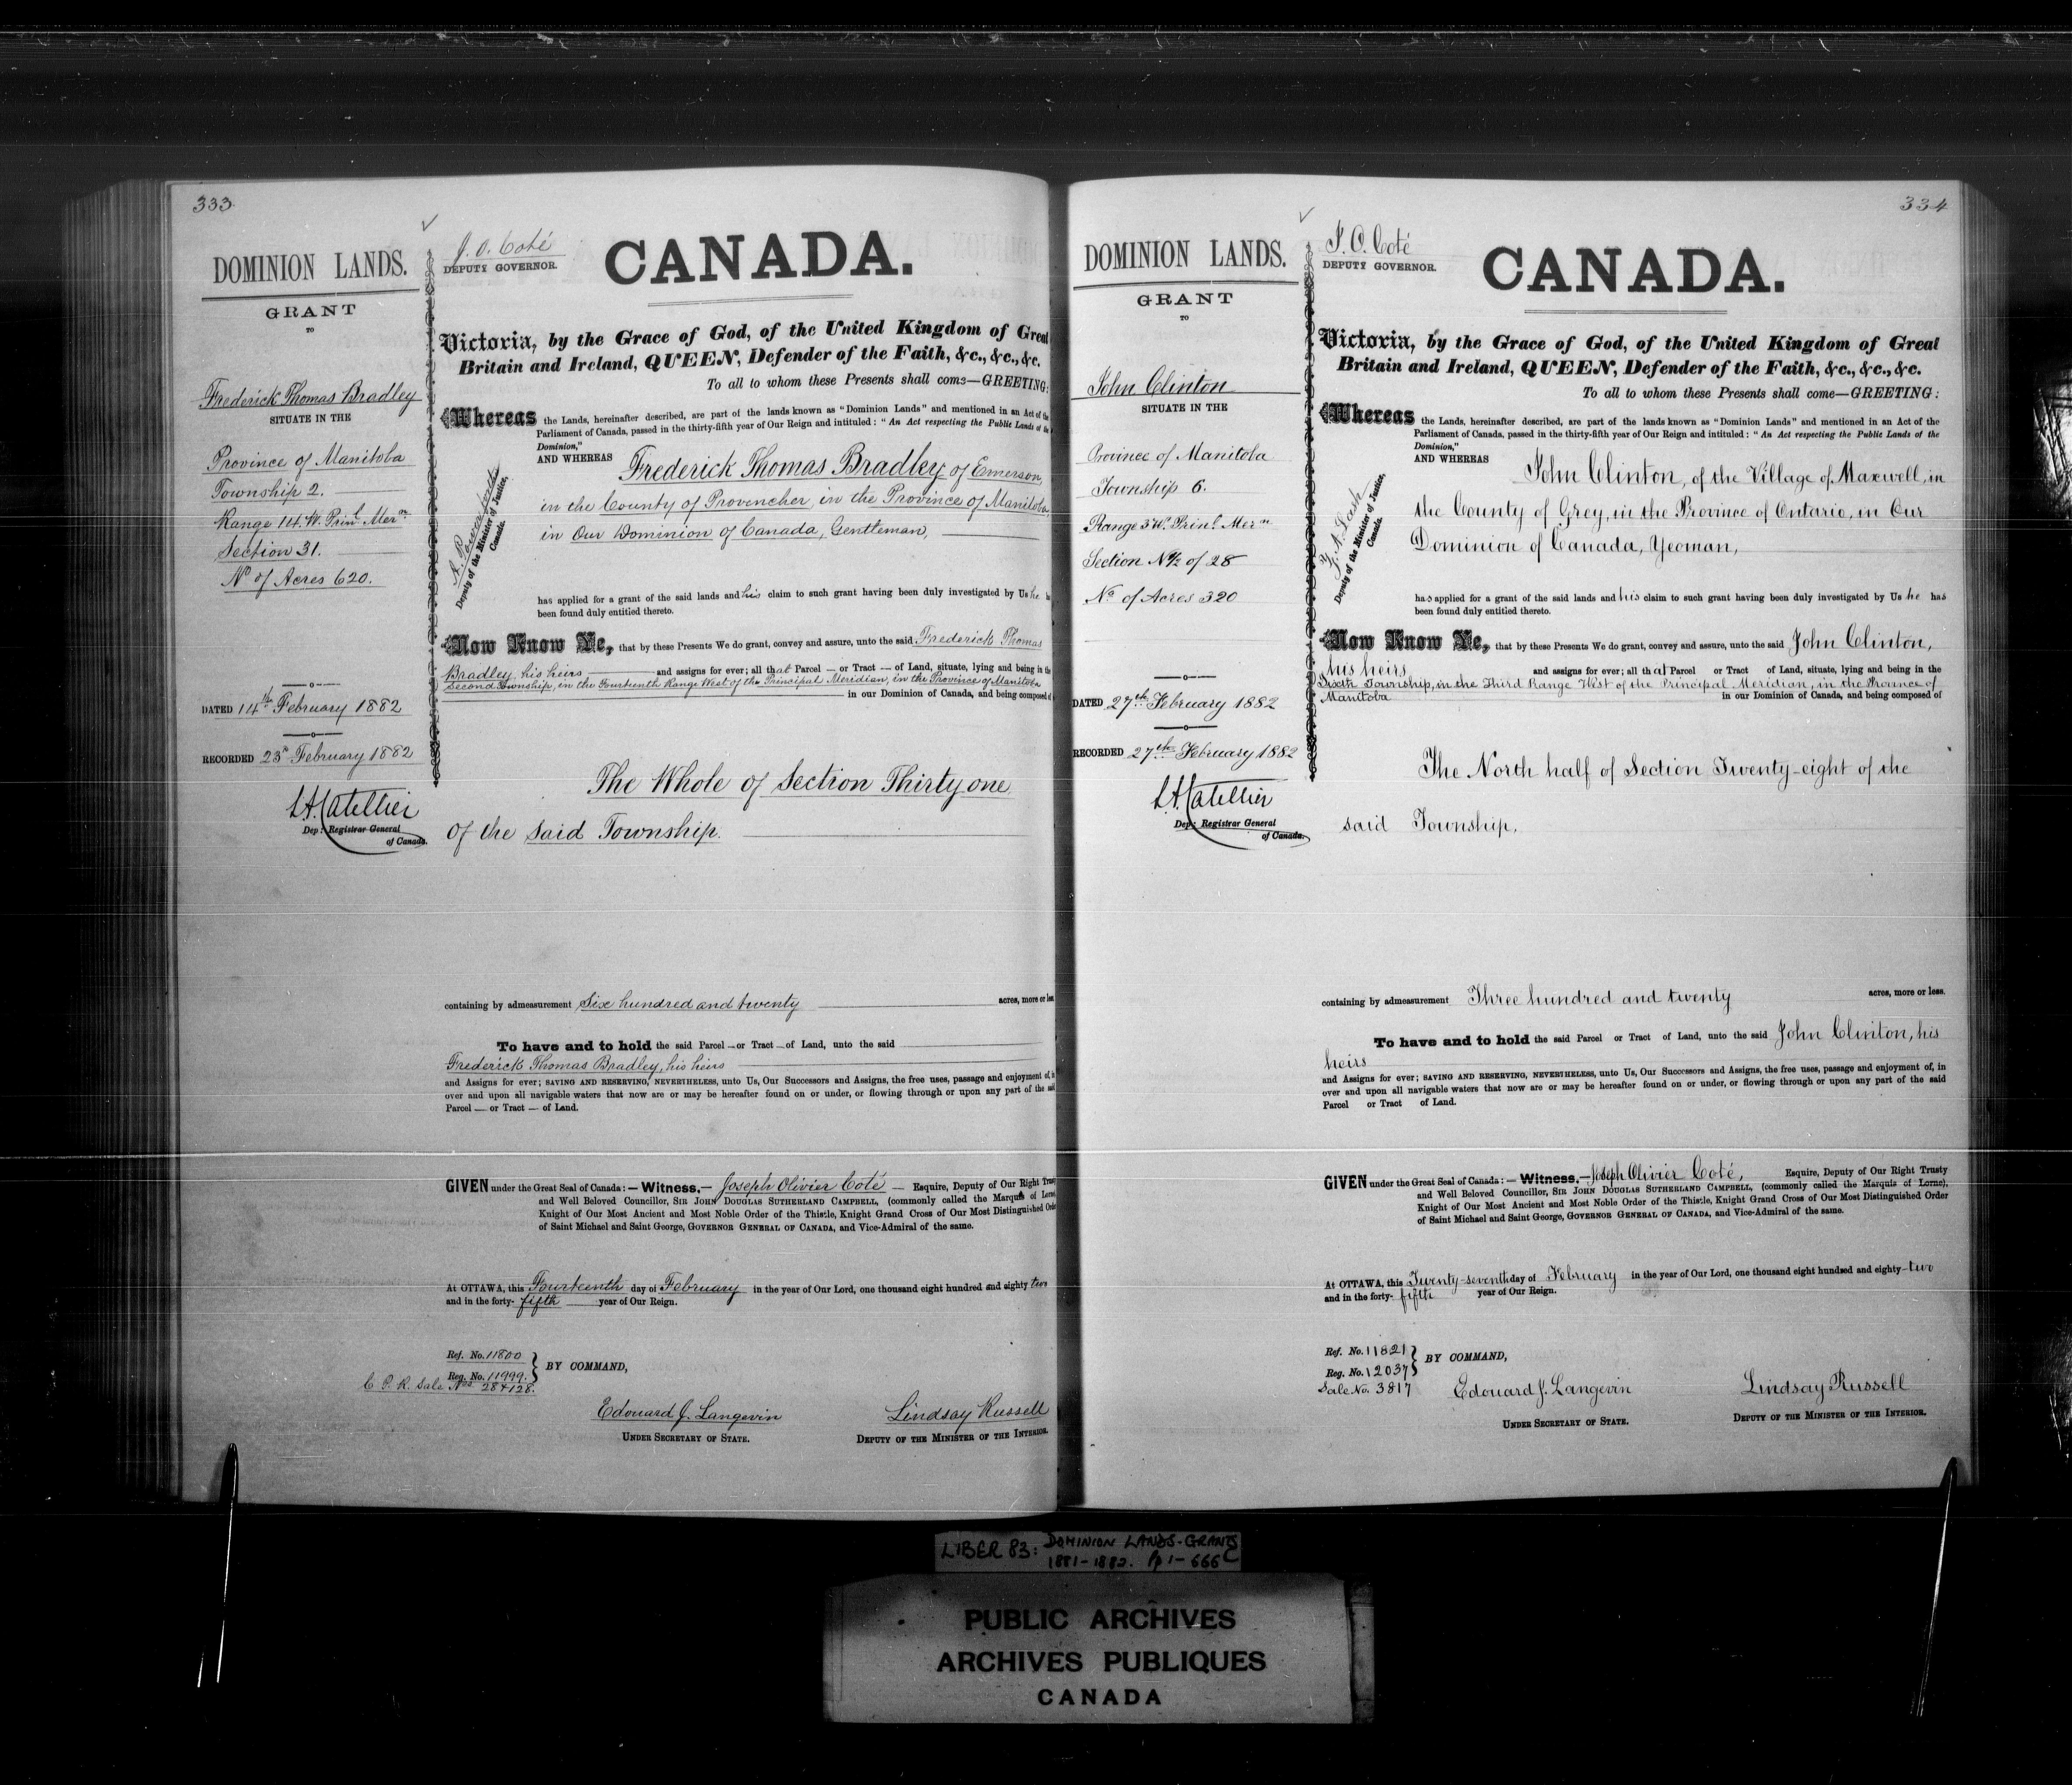 333
DOMINION LANDS.
GRANT
TO
Frederick Thomas Bradley
SITUATE IN THE
Province of Manitoba
Township 2.
Range 14 W. Prinl. Mern.
Section 31.
No of Acres 620.
DATED 14th February 1882
RECORDED 23d February 1882
L.A. Catellier
Dep: Registrar General
of Canada.
J. O. Coté
DEPUTY GOVERNOR.
CANADA.
Victoria, by the Grace of God, of the United Kingdom of Great
Britain and Ireland, QUEEN, Defender of the Faith, &c., &c., &c.
To all to whom these Presents shall come—GREETING:
Whereas the Lands, hereinafter described, are part of the lands known as "Dominion Lands" and mentioned in an Act of the
Parliament of Canada, passed in the thirty-fifth year of Our Reign and intituled: "An Act respecting the Public Lands of the
Dominion,"
AND WHEREAS Frederick Thomas Bradley of Emerson,
in the County of Provencher, in the Province of Manitoba,
in Our Dominion of Canada, Gentleman,
A. Power
Deputy of the Minister of Justice,
Canada.
has applied for a grant of the said lands and his claim to such grant having been duly investigated by Us he
been found duly entitled thereto.
Now Know Ye, that by these Presents We do grant, convey and assure, unto the said Frederick Thomas
Bradley, his heirs and assigns for ever; all that Parcel — or Tract — of Land, situate, lying and being in the
Second Township, in the Fourteenth Range West of the Principal Meridian, in the Province of Manitoba
in our Dominion of Canada, and being composed of
The Whole of Section Thirty one
of the said Township.
containing by admeasurement Six hundred and twenty acres, more or less
To have and to hold the said Parcel — or Tract — of Land, unto the said
Frederick Thomas Bradley, his heirs
and Assigns for ever; SAVING AND RESERVING, NEVERTHELESS, unto Us, Our Successors and Assigns, the free uses, passage and enjoyment of, in
over and upon all navigable waters that now are or may be hereafter found on or under, or flowing through or upon any part of the said
Parcel — or Tract — of Land.
GIVEN under the Great Seal of Canada:—Witness,— Joseph Olivier Coté — Esquire, Deputy of Our Right Trusty
and Well Beloved Councillor, SIR JOHN DOUGLAS SUTHERLAND CAMPBELL, (commonly called the Marquis of Lorne),
Knight of Our Most Ancient and Most Noble Order of the Thistle, Knight Grand Cross of Our Most Distinguished Order
of Saint Michael and Saint George, GOVERNOR GENERAL OF CANADA, and Vice-Admiral of the same.
At OTTAWA, this Fourteenth day of February in the year of Our Lord, one thousand eight hundred and eighty two
and in the forty-fifth year of Our Reign.
Ref. No. 11800
Reg. No. 11999.
BY COMMAND,
C. P. R. Sale Nos 28 & 128.
Edouard J. Langevin
UNDER SECRETARY OF STATE.
Lindsay Russell
DEPUTY OF THE MINISTER OF THE INTERIOR.
334
DOMINION LANDS.
GRANT
TO
John Clinton
SITUATE IN THE
Province of Manitoba
Township 6.
Range 3 W. Prinl. Mern
Section N½ of 28
No. of Acres 320
DATED 27th February 1882
RECORDED 27th February 1882
L.A. Catellier
Dep: Registrar General
of Canada.
J. O. Coté
DEPUTY GOVERNOR.
CANADA.
Victoria, by the Grace of God, of the United Kingdom of Great
Britain and Ireland, QUEEN, Defender of the Faith, &c., &c., &c.
To all to whom these Presents shall come—GREETING:
Whereas the Lands, hereinafter described, are part of the lands known as "Dominion Lands" and mentioned in an Act of the
Parliament of Canada, passed in the thirty-fifth year of Our Reign and intituled: "An Act respecting the Public Lands of the
Dominion,"
AND WHEREAS John Clinton, of the Village of Maxwell, in
the County of Grey, in the Province of Ontario, in Our
Dominion of Canada, Yeoman,
Z. A. Lash
Deputy of the Minister of Justice,
Canada.
has applied for a grant of the said lands and his claim to such grant having been duly investigated by Us he has
been found duly entitled thereto.
Now Know Ye, that by these Presents We do grant, convey and assure, unto the said John Clinton,
his heirs and assigns for ever; all that Parcel or Tract of Land, situate, lying and being in the
Sixth Township, in the Third Range West of the Principal Meridian, in the Province of
Manitoba in our Dominion of Canada, and being composed of
The North half of Section Twenty-eight of the
said Township.
containing by admeasurement Three hundred and twenty acres, more or less.
To have and to hold the said Parcel or Tract of Land, unto the said John Clinton, his
heirs
and Assigns for ever; SAVING AND RESERVING, NEVERTHELESS, unto Us, Our Successors and Assigns, the free uses, passage and enjoyment of, in
over and upon all navigable waters that now are or may be hereafter found on or under, or flowing through or upon any part of the said
Parcel or Tract of Land.
GIVEN under the Great Seal of Canada:—Witness,— Joseph Olivier Coté, Esquire, Deputy of Our Right Trusty
and Well Beloved Councillor, SIR JOHN DOUGLAS SUTHERLAND CAMPBELL, (commonly called the Marquis of Lorne),
Knight of Our Most Ancient and Most Noble Order of the Thistle, Knight Grand Cross of Our Most Distinguished Order
of Saint Michael and Saint George, GOVERNOR GENERAL OF CANADA, and Vice-Admiral of the same.
At OTTAWA, this Twenty-seventh day of February in the year of Our Lord, one thousand eight hundred and eighty-two
and in the forty-fifth year of Our Reign.
Ref. No. 11821
Reg. No. 12037
BY COMMAND,
Sale No. 3817
Edouard J. Langevin
UNDER SECRETARY OF STATE.
Lindsay Russell
DEPUTY OF THE MINISTER OF THE INTERIOR.
LIBER 83: DOMINION LANDS-GRANTS
1881-1882. Pp 1-666
PUBLIC ARCHIVES
ARCHIVES PUBLIQUES
CANADA